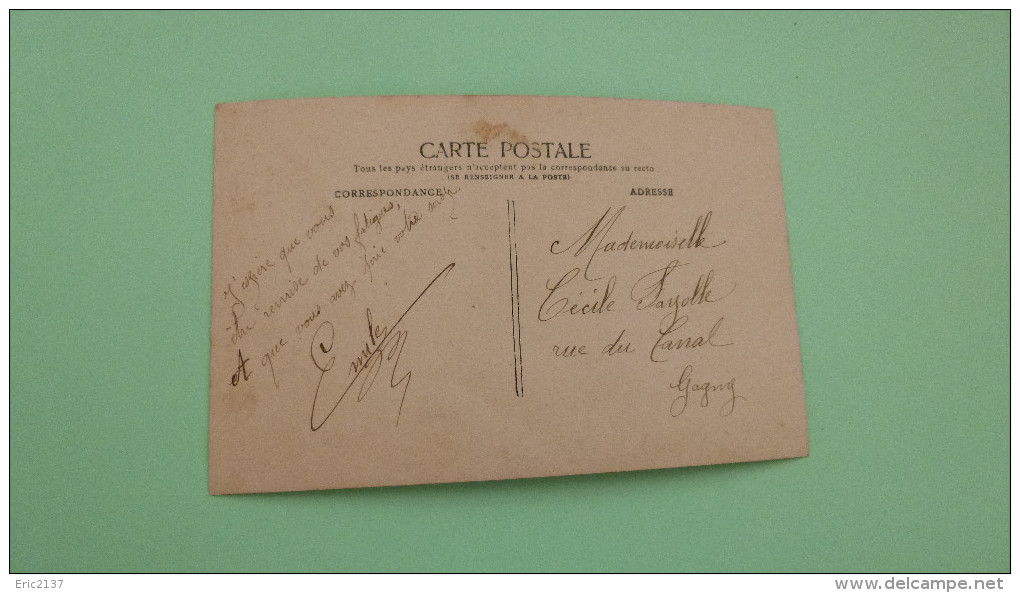 CARTE POSTALE
Tous les pays étrangers n'acceptent pas la correspondance au recto
(SE RENSEIGNER A LA POSTE)
CORRESPONDANCE
ADRESSE
J'espère que vous
remise de vos fatigues,
et que vous avez finie votre
Emile
Mademoiselle
Cécile Fayolle
rue du Canal
Gagny
Eric2137
www.delcampe.net